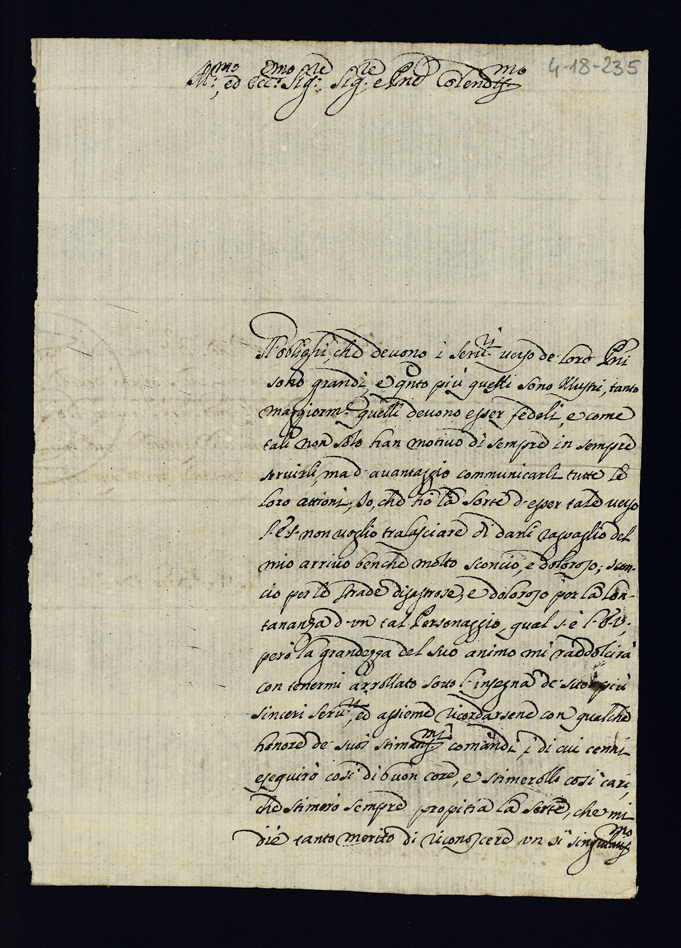 4-18-235
Ill:mo, ed Ecc:mo Sig:re Sig:re e Pne Colendmo
Gl'oblighi, che devono i Seru:ri verso de loro Pni
sono grandi, e qnto più questi sono Illustri, tanto
maggiorm:e quelli devono esser fedeli, e come
tali non solo han motivo di sempre in sempre
servirli, ma d'avantaggio communicarli tutte le
loro attioni, Io, che hò la sorte d'esser tale verso
non voglio tralasciare di darli raguaglio del
mio arrivo benche molto sconcio, e doloroso, scon-
cio per le strade disastrose, e doloroso per la lon-
tananza d'un tal Personaggio, qual s'è
però la grandezza del suo animo mi raddolcirà
con tenermi arrollato sotto l'insegna de suoi più
sinceri Seru:ri, ed assieme ricordarsene con qualche
honore de suoi stimatmi comandi, i di cui cenni
eseguirò così di buon core, e stimerolli così cari,
che stimerò sempre propitia la sorte, che mi
diè tanto merito di riconoscere un sì singularmo